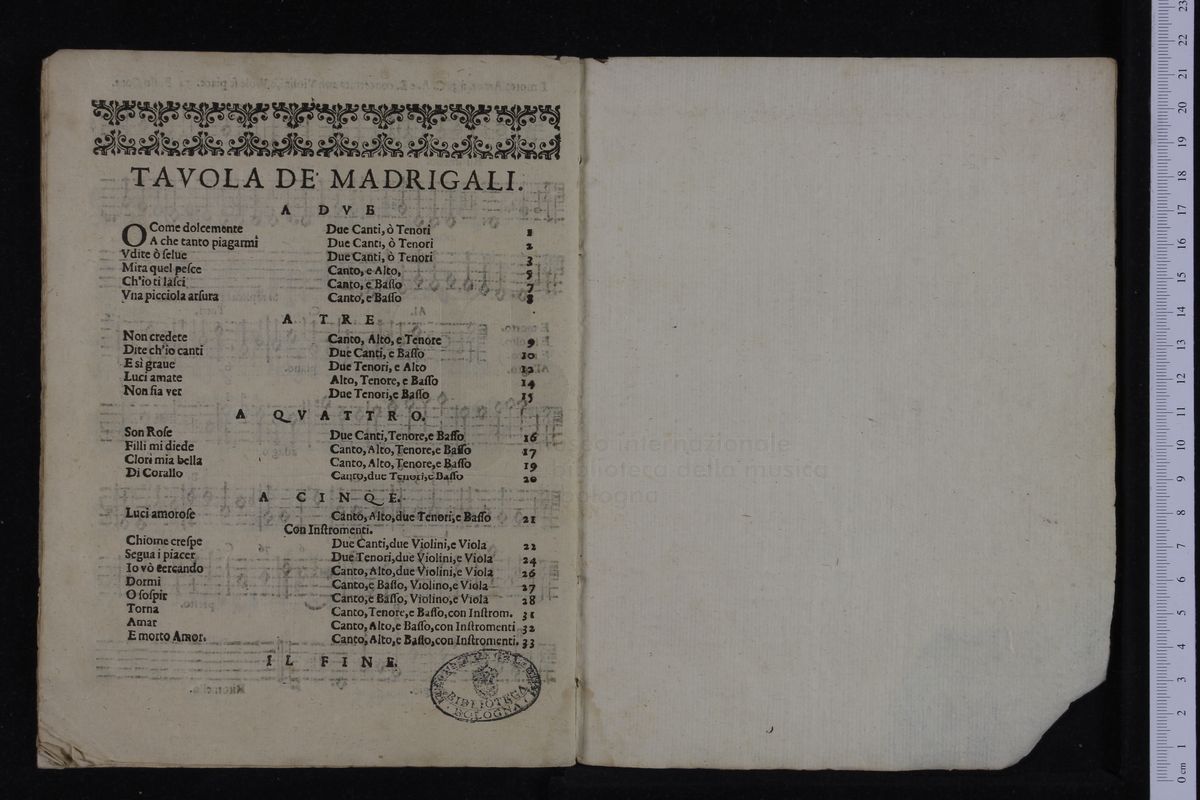 TAVOLA DE' MADRIGALI.
A DVE
O Come dolcemente Due Canti, ò Tenori 1
A che tanto piagarmi Due Canti, ò Tenori 2
Vdite ò ſelue Due Canti, ò Tenori 3
Mira quel peſce Canto, e Alto, 5
Ch'io ti laſci Canto, e Baſſo 7
Vna picciola arſura Canto, e Baſſo 8
A TRE
Non credete Canto, Alto, e Tenore 9
Dite ch'io canti Due Canti, e Baſſo 10
E sì graue Due Tenori, e Alto 12
Luci amate Alto, Tenore, e Baſſo 14
Non ſia ver Due Tenori, e Baſſo 15
A QVATTRO.
Son Roſe Due Canti, Tenore, e Baſſo 16
Filli mi diede Canto, Alto, Tenore, e Baſſo 17
Clori mia bella Canto, Alto, Tenore, e Baſſo 19
Di Corallo Canto, due Tenori, e Baſſo 20
A CINQE.
Luci amoroſe Canto, Alto, due Tenori, e Baſſo 21
Con Inſtromenti.
Chiome creſpe Due Canti, due Violini, e Viola 22
Segua i piacer Due Tenori, due Violini, e Viola 24
Io vò cercando Canto, Alto, due Violini, e Viola 26
Dormi Canto, e Baſſo, Violino, e Viola 27
O ſoſpir Canto, e Baſſo, Violino, e Viola 28
Torna Canto, Tenore, e Baſſo, con Inſtrom. 31
Amar Canto, Alto, e Baſſo, con Inſtromenti 32
E morto Amor. Canto, Alto, e Baſſo, con Inſtromenti. 33
IL FINE.
BIBLIOTECA
BOLOGNA
museo internazionale
biblioteca della musica
bologna
0 cm 1 2 3 4 5 6 7 8 9 10 11 12 13 14 15 16 17 18 19 20 21 22 23